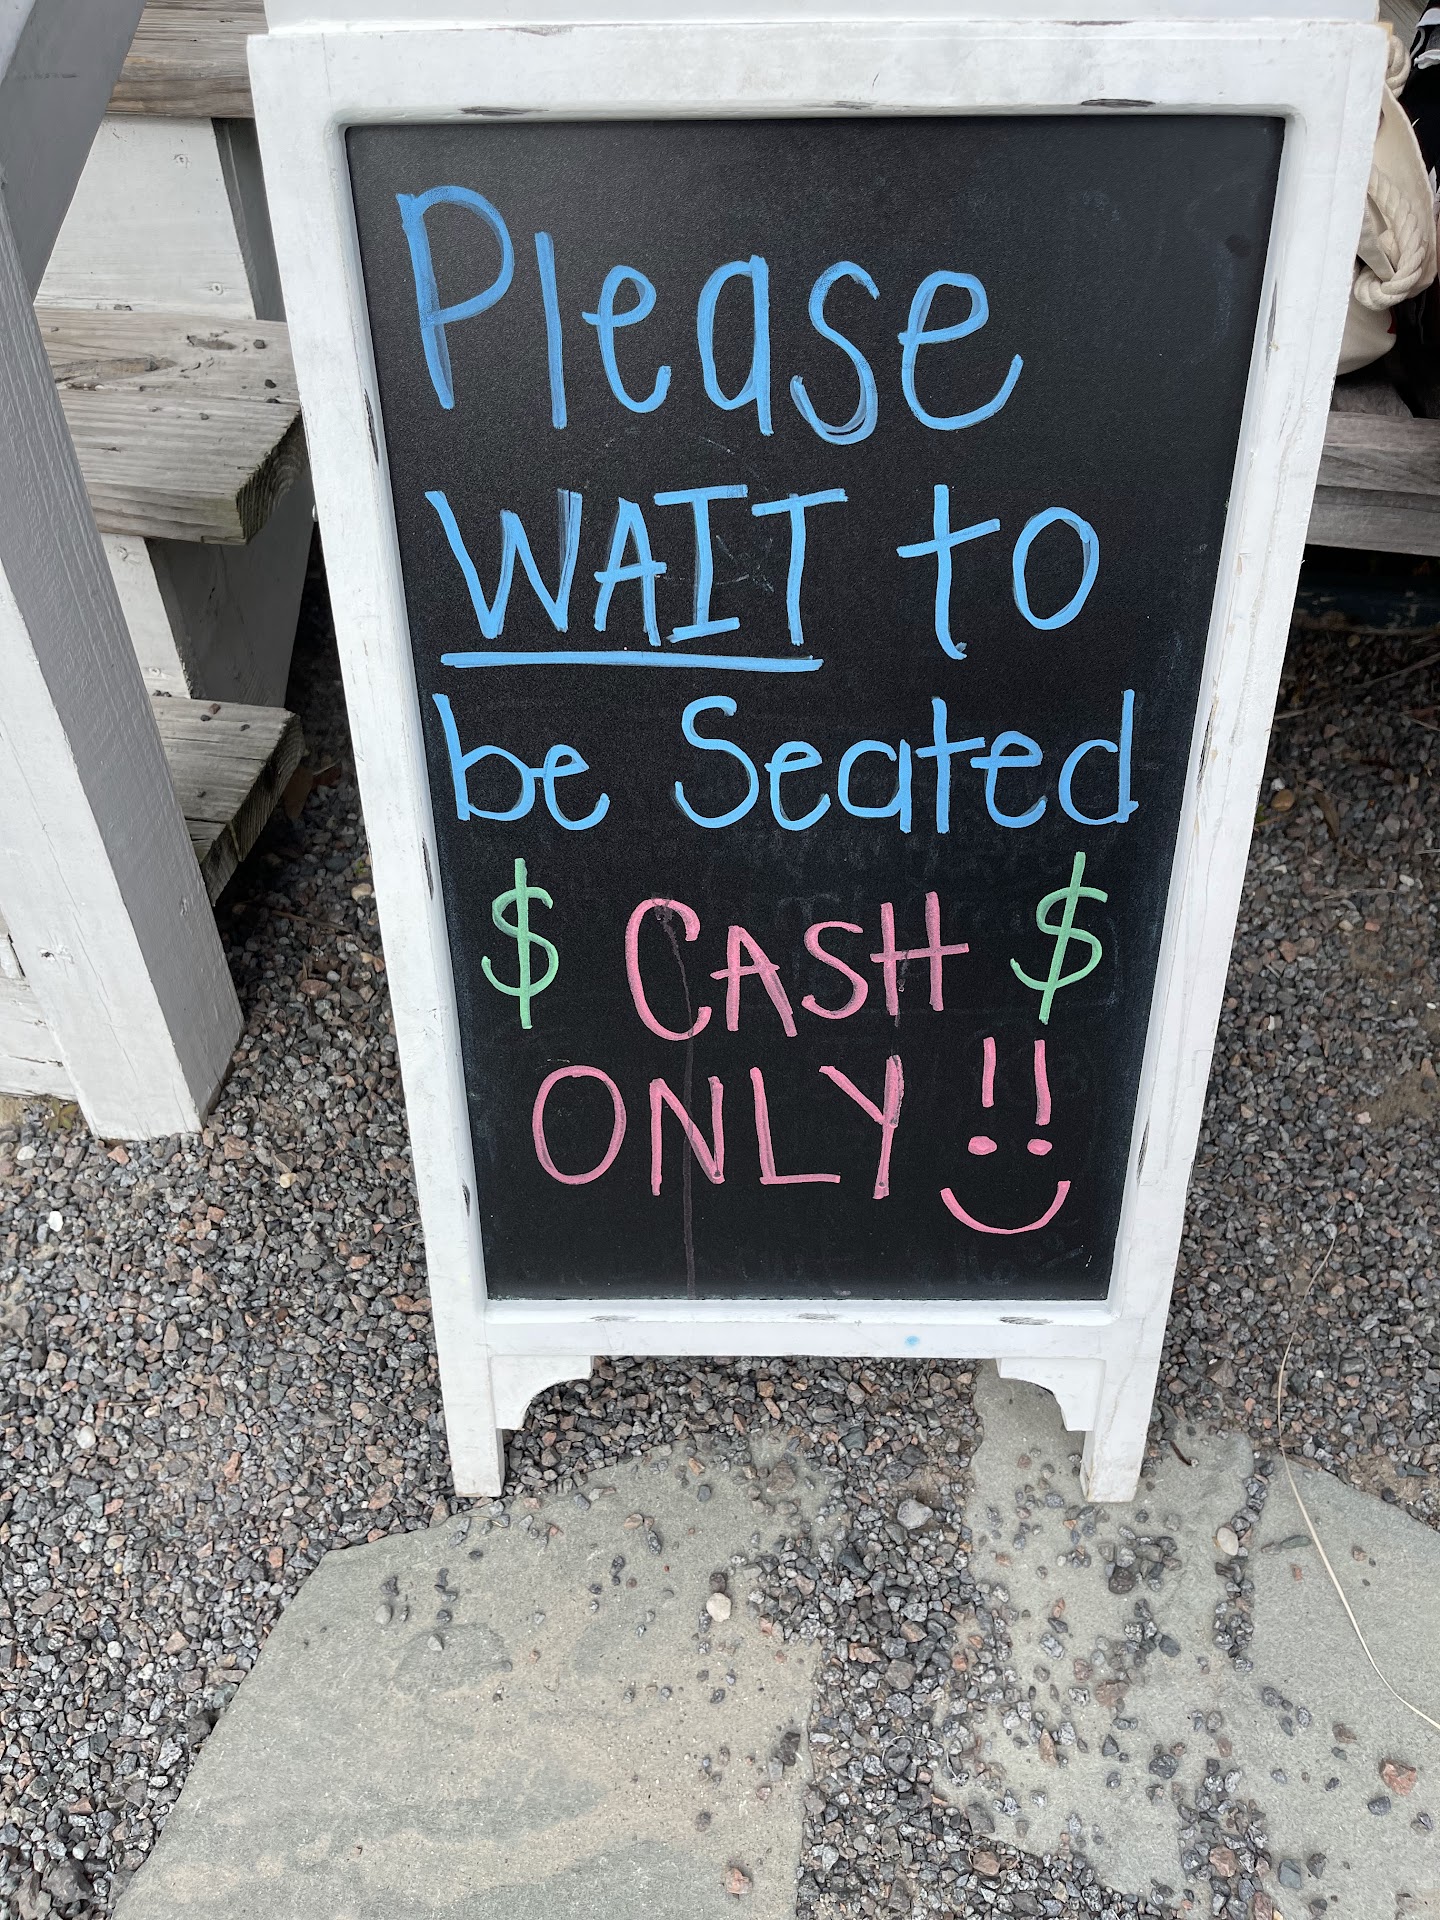 Please
WAIT to
be Seated
$ CASH $
ONLY !!